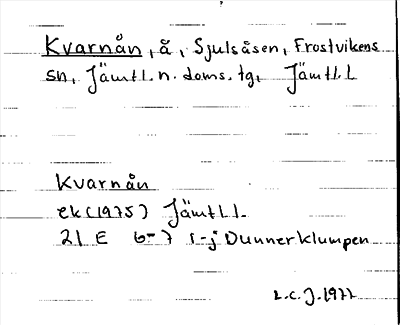 Kvarnån, å, Sjulsåsen, Frostvikens
sn, Jämtl. n. doms. tg, Jämtl. l
Kvarnån
ek (1975) Jämtl l.
21 E 6-7 i-j Dunnerklumpen
L.C.J. 1977